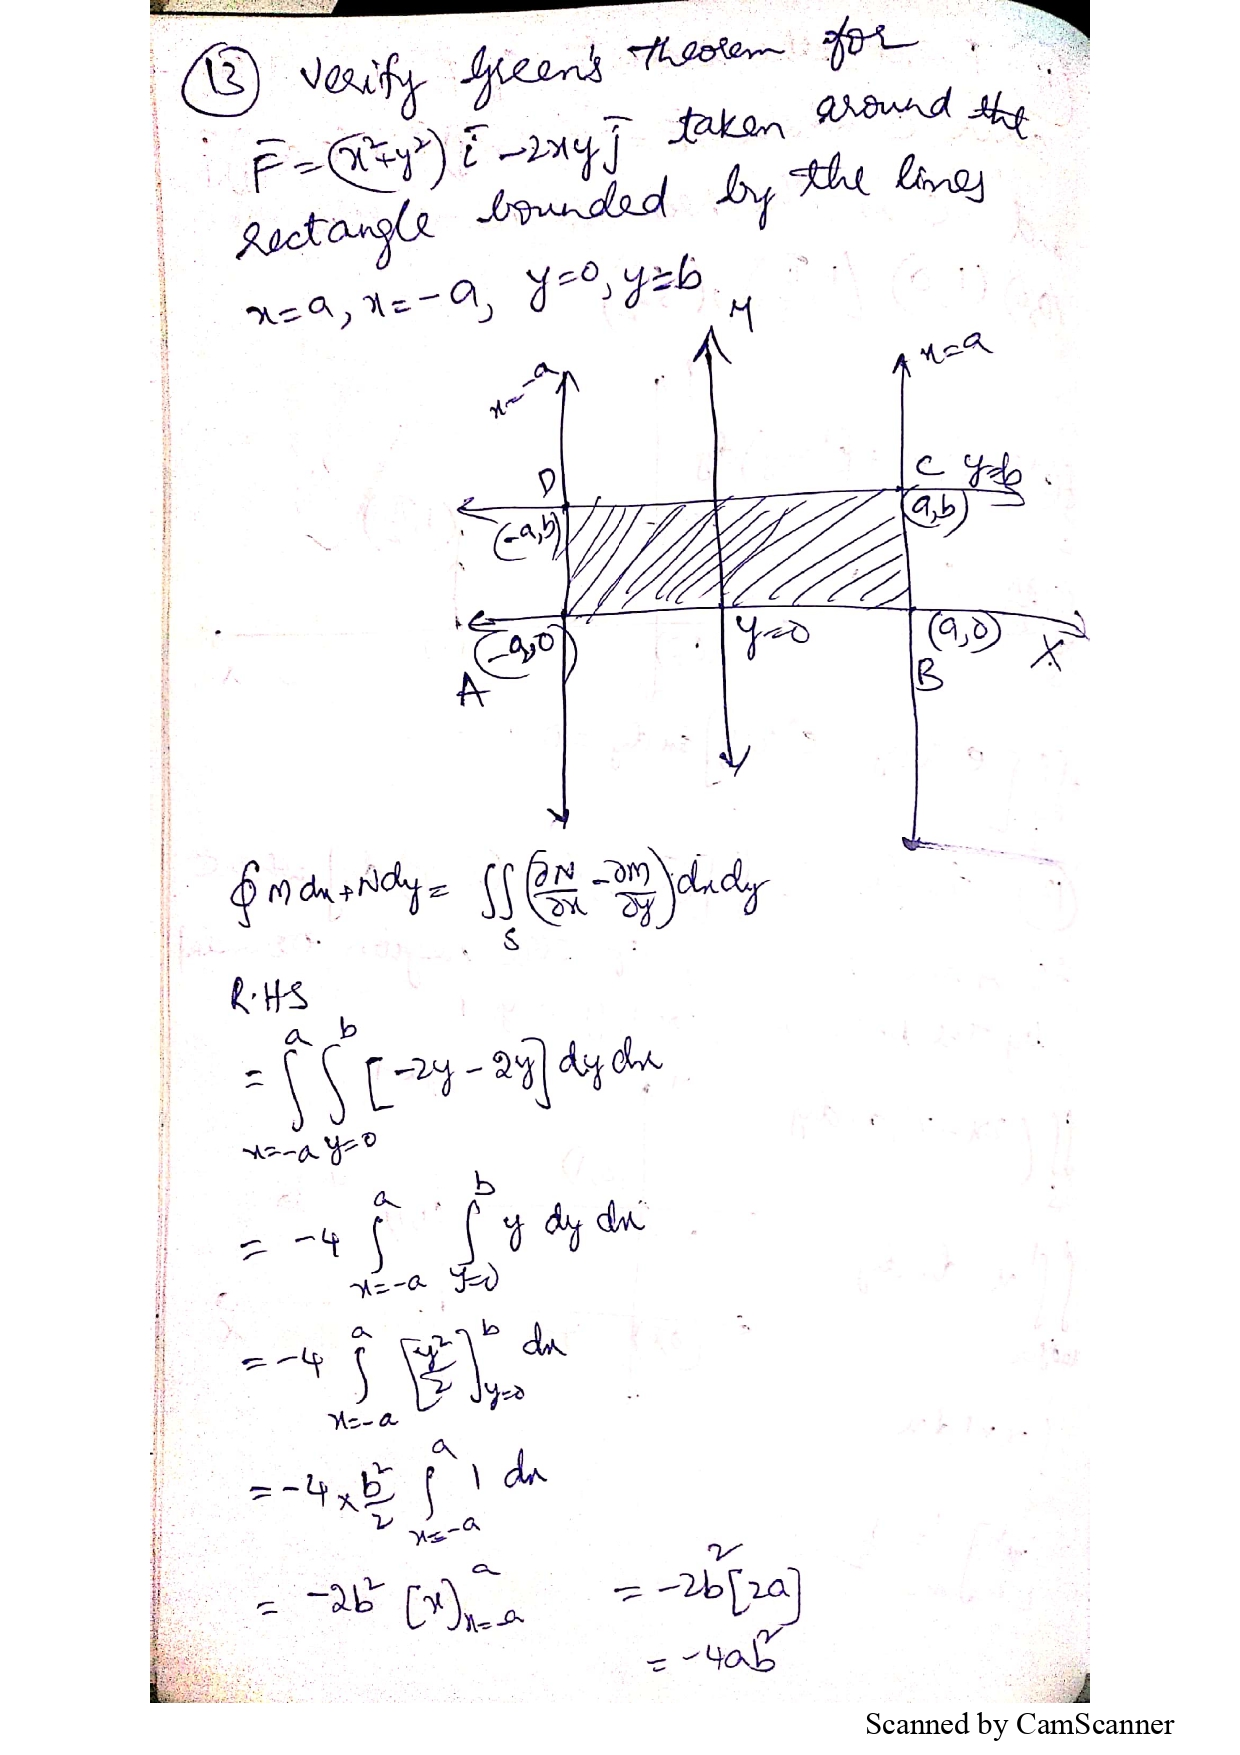 13 Verify Green's theorem for
F̄ = (x²+y²) ī -2xy j̄ taken around the
rectangle bounded by the lines
x=a, x=-a, y=0, y=b
Y
x=-a
x=a
D
C y=b
(-a,b)
(a,b)
(-a,0)
y=0
(a,0)
X
A
B
∮ M dx + N dy = ∬_S (∂N/∂x - ∂M/∂y) dx dy
R.H.S
= ∫_{x=-a}^{a} ∫_{y=0}^{b} [-2y - 2y] dy dx
= -4 ∫_{x=-a}^{a} ∫_{y=0}^{b} y dy dx
= -4 ∫_{x=-a}^{a} [y²/2]_{y=0}^{b} dx
= -4 × b²/2 ∫_{x=-a}^{a} 1 dx
= -2b² [x]_{x=-a}^{a} = -2b² [2a]
= -4ab²
Scanned by CamScanner